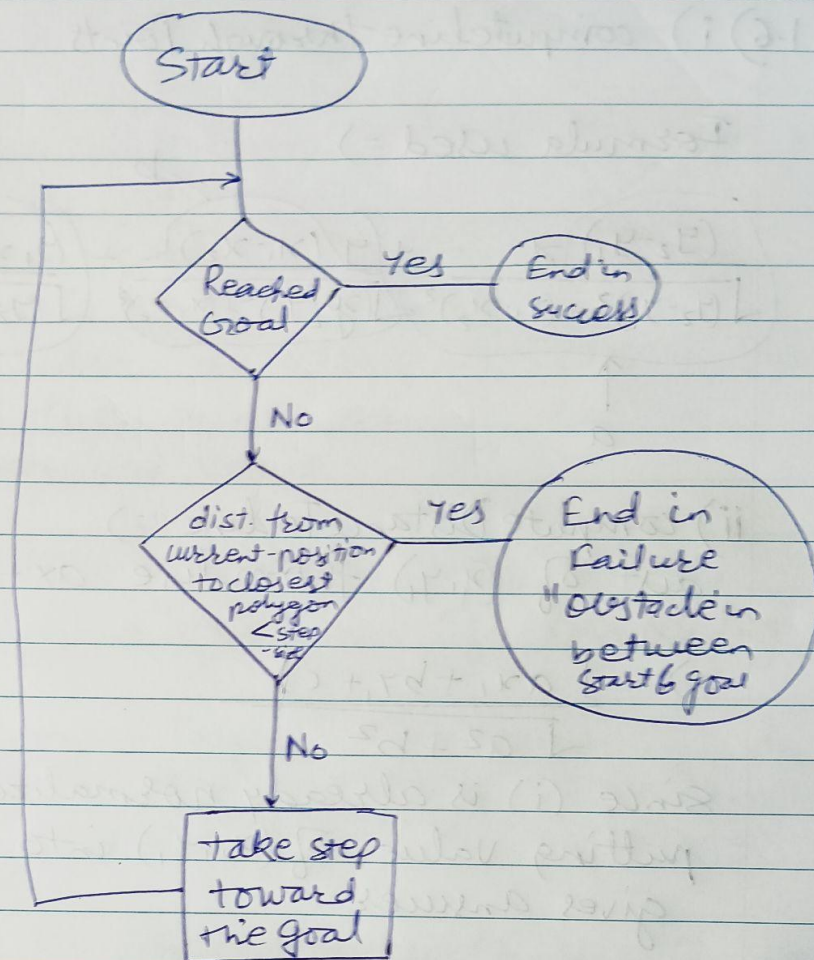 Start
Reached
Goal
Yes
End in
success
No
dist. from
current-position
to closest
polygon
< step
-size
Yes
End in
Failure
"Obstacle in
between
start & goal
No
take step
toward
the goal